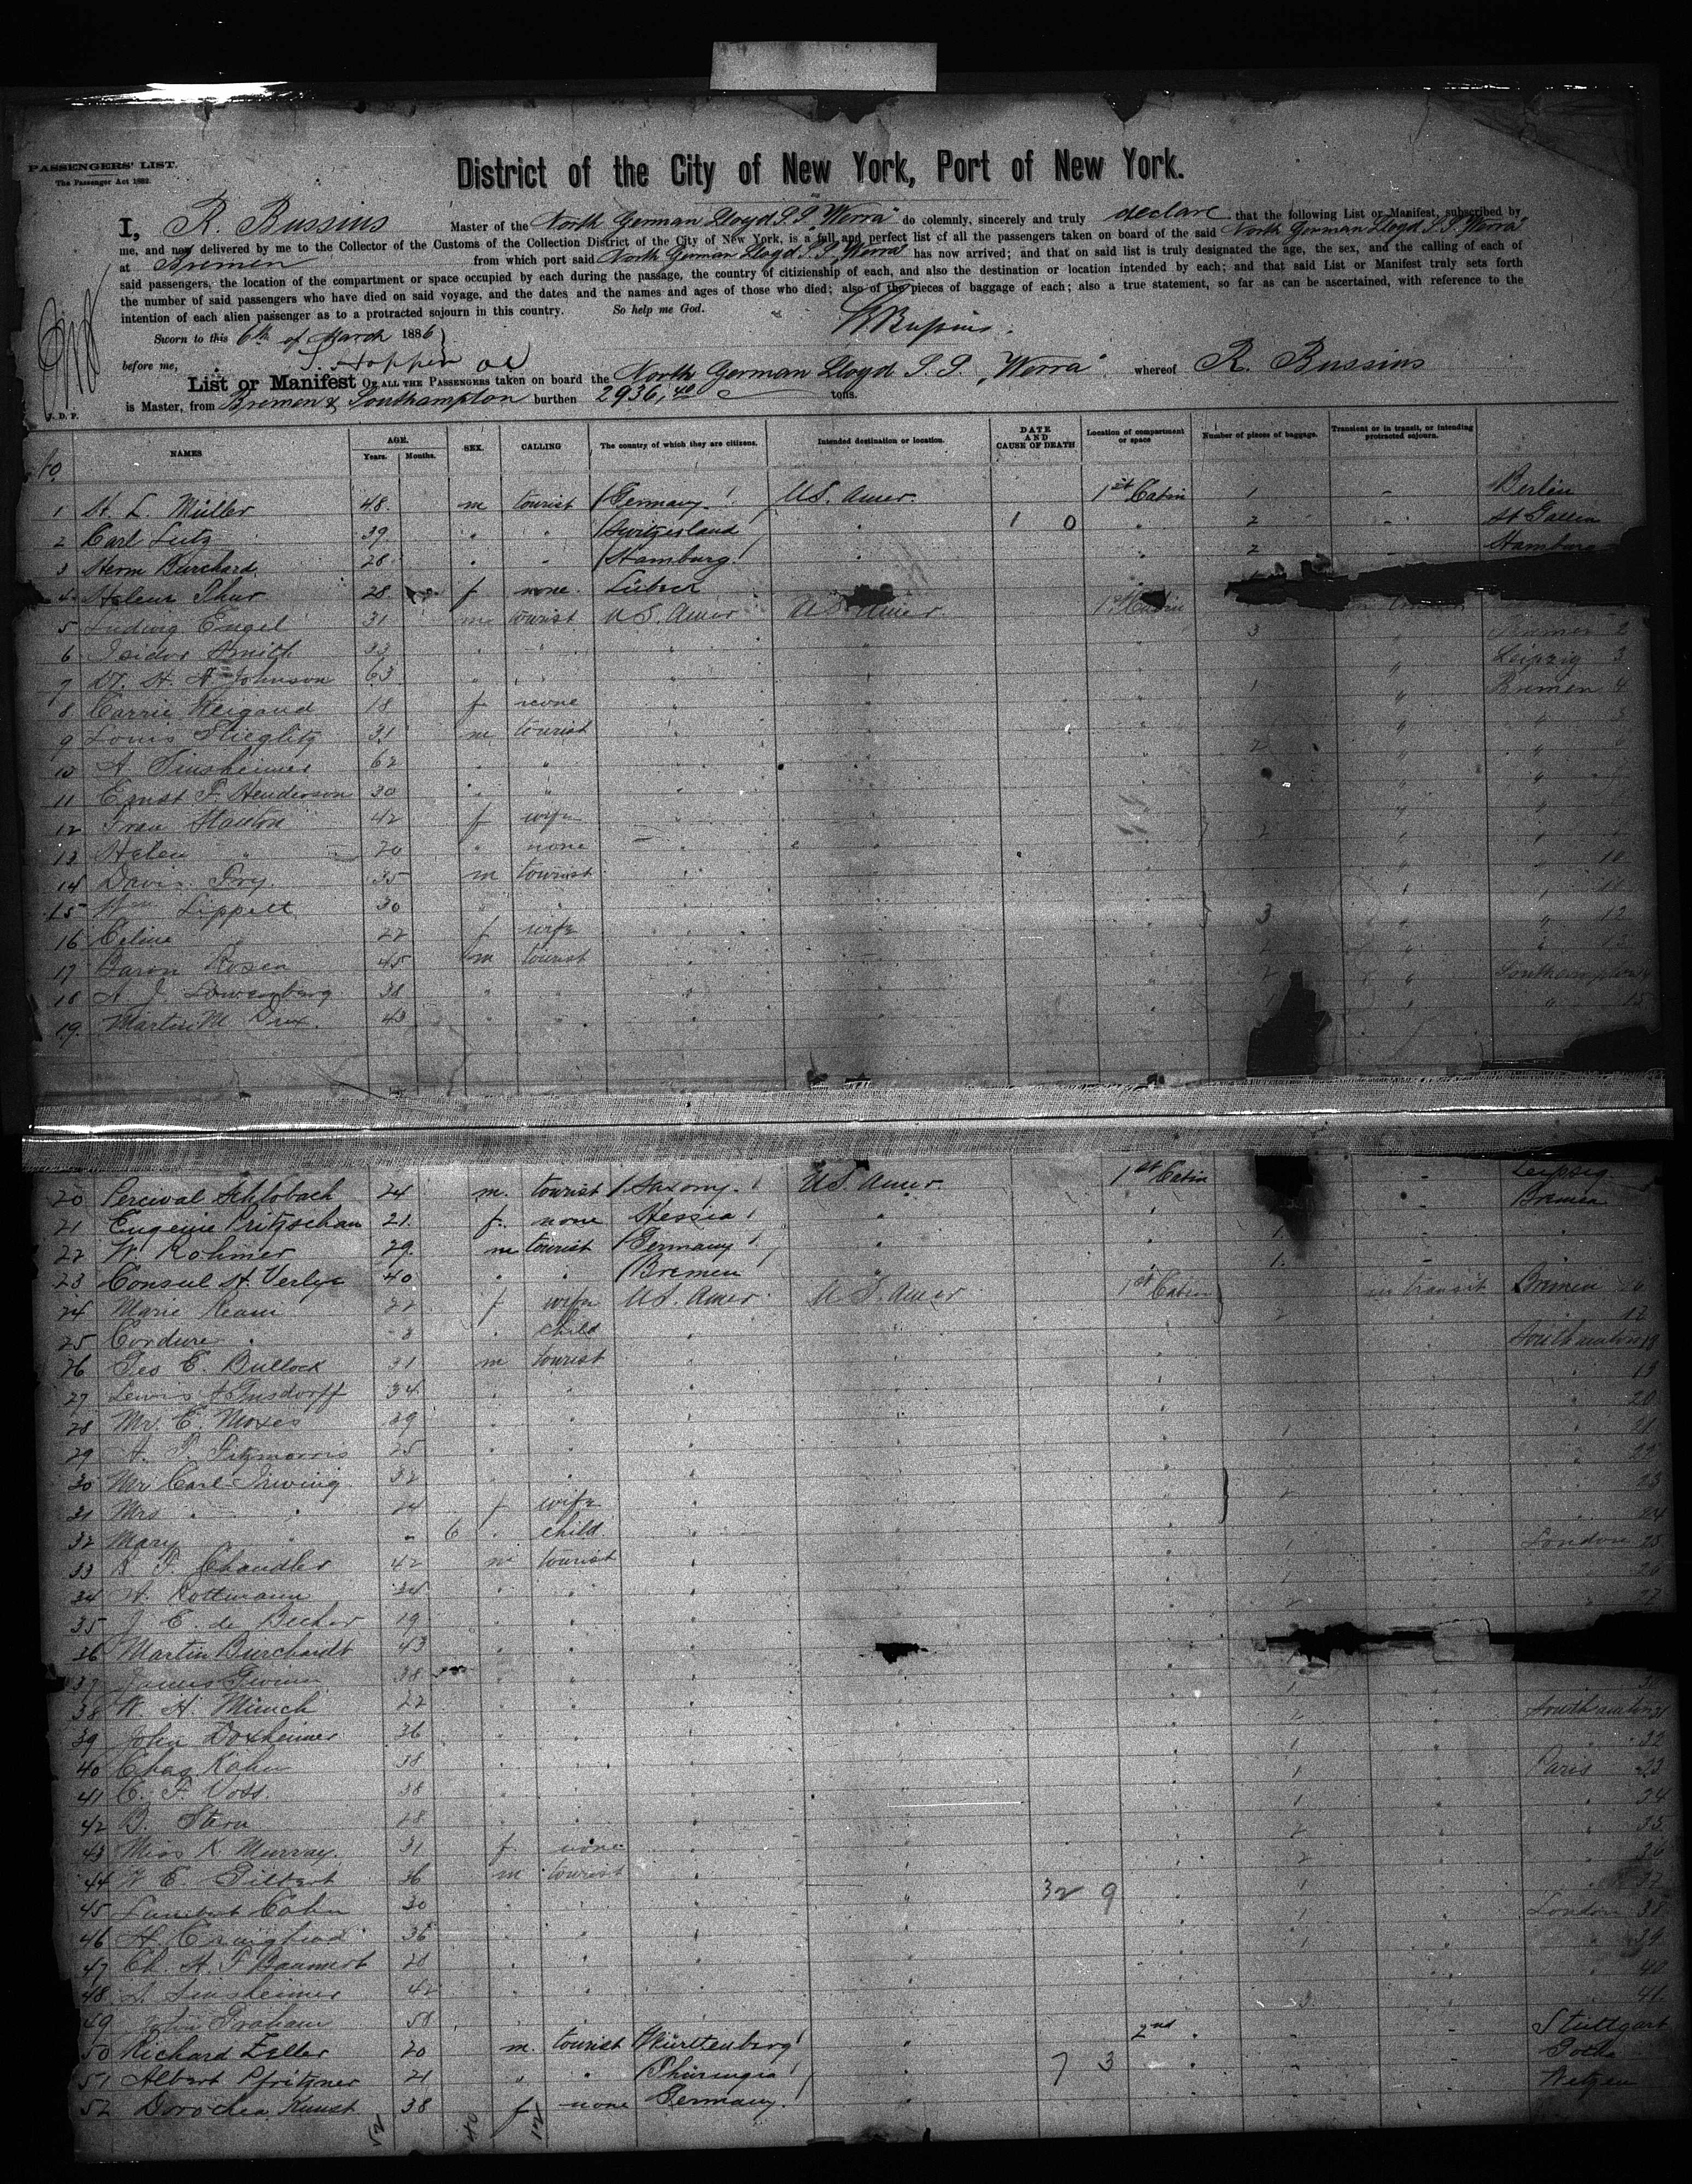 PASSENGERS' LIST.
The Passenger Act 1882.
District of the City of New York, Port of New York.
I, R. Bussius Master of the North German Lloyd S.S. "Werra" do solemnly, sincerely and truly declare that the following List or Manifest, subscribed by
me, and now delivered by me to the Collector of the Customs of the Collection District of the City of New York, is a full and perfect list of all the passengers taken on board of the said North German Lloyd S.S. Werra
at Bremen from which port said North German Lloyd S.S. "Werra" has now arrived; and that on said list is truly designated the age, the sex, and the calling of each of
said passengers, the location of the compartment or space occupied by each during the passage, the country of citizienship of each, and also the destination or location intended by each; and that said List or Manifest truly sets forth
the number of said passengers who have died on said voyage, and the dates and the names and ages of those who died; also of the pieces of baggage of each; also a true statement, so far as can be ascertained, with reference to the
intention of each alien passenger as to a protracted sojourn in this country. So help me God.
R Bussius.
Sworn to this 6th of March 1886
before me,
List or Manifest OF ALL THE PASSENGERS taken on board the North German Lloyd S.S. "Werra" whereof R. Bussius
is Master, from Bremen & Southampton burthen 2936,40 tons.
J. D. P.
NAMES AGE. Years. Months. SEX. CALLING The country of which they are citizens. Intended destination or location. DATE AND CAUSE OF DEATH Location of compartment or space Number of pieces of baggage. Transient or in transit, or intending protracted sojourn.
1 H. L. Müller 48 m tourist Germany U.S. Amer. 1st Cabin 1 - Berlin
2 Carl Lutz 39 " " Switzerland " 1 0 " 2 - St Gallen
3 Herm Burchard 28 " " Hamburg " " 2 - Hamburg
4 28 f none Lübeck
5 Ludwig Engel 31 m tourist U.S. Amer U.S. Amer. 1st Cabin
6 Isidor Smith 33 " " " " 3 " Bremen 2
7 H. A. Johnson 63 " " " " Leipzig 3
8 Carrie Weigand 18 f none " 1 " Bremen 4
9 Louis Stieglitz 31 m tourist " "
10 A. Sinsheimer 62 " " " 2 "
11 Ernst F. Henderson 30 " " " "
12 Frau Stanton 42 f wife " "
13 Helen " 20 " none " " 2 "
14 Davis 35 m tourist " " 10
15 Wm Lippelt 30 " " " 11
16 Celine " 22 f wife " 3 " 12
17 Baron Rosen 45 m tourist " " " 13
18 A. J. Lowenberg 38 " " " 2 " Southampton
19 Martin M 43 " " " 1 " " 15
20 Percival Schlobach 24 m. tourist Saxony U.S. Amer. 1st Cabin - Leipzig
21 Eugenie Pritzschau 21 f. none Hessia " " Bremen
22 W. Rohmer 29 m tourist Germany " " 1. - "
23 Consul H. 40 " " Bremen " " 1. - "
24 Marie 22 f wife U.S. Amer. U.S. Amer 1st Cabin 2 in transit Bremen 16
25 3 " child " " 17
26 Geo E. Bullock 31 m tourist " " Southampton 18
27 Lewis 34 " " " "
28 Mr. E. Moses 39 " " " " 20
29 A. P. Fitzmorris 25 " " " 1 " 21
30 Mr Carl Irwing 32 " " " " 22
31 Mrs " " 24 f wife " 2 " 23
32 Mary " - 6 " child " " 24
33 F. Chandler 42 m tourist " 1 " London 25
34 Rottmann 34 " " " 1 " 26
35 J. E. de Becker 19 " " " 2 " 27
36 Martin Burchardt 43 " " "
37 James 38 " " " 30
38 W. H. Münch 22 " " " 1 " Southampton 31
39 John Doxheimer 36 " " " " 32
40 Chas Kahn 38 " " " 1 " Paris 33
41 C. F. Voss. 38 " " " 1 " " 34
42 B. Stern 28 " " " 1 " " 35
43 Miss K. Murray. 31 f none " 2 " " 36
44 E. Gilbert 36 m tourist " 2 " " 37
45 Lambert Cohn 30 " " " 32 9 1 " London 38
46 H. Craighead 36 " " " 1 " " 39
47 Ch. H. F. Baumert 20 " " " 1 " " 40
48 Sinsheimer 42 " " " " " 41
49 John Graham 58 " " "
50 Richard Zeller 20 m. tourist Württenberg " 2nd " - - Stuttgart
51 Albert Pfritzner 21 " " Thuringia " 7 3 " - - Gotha
52 Dorothea Kunst 38 f none Germany "
52 40 12